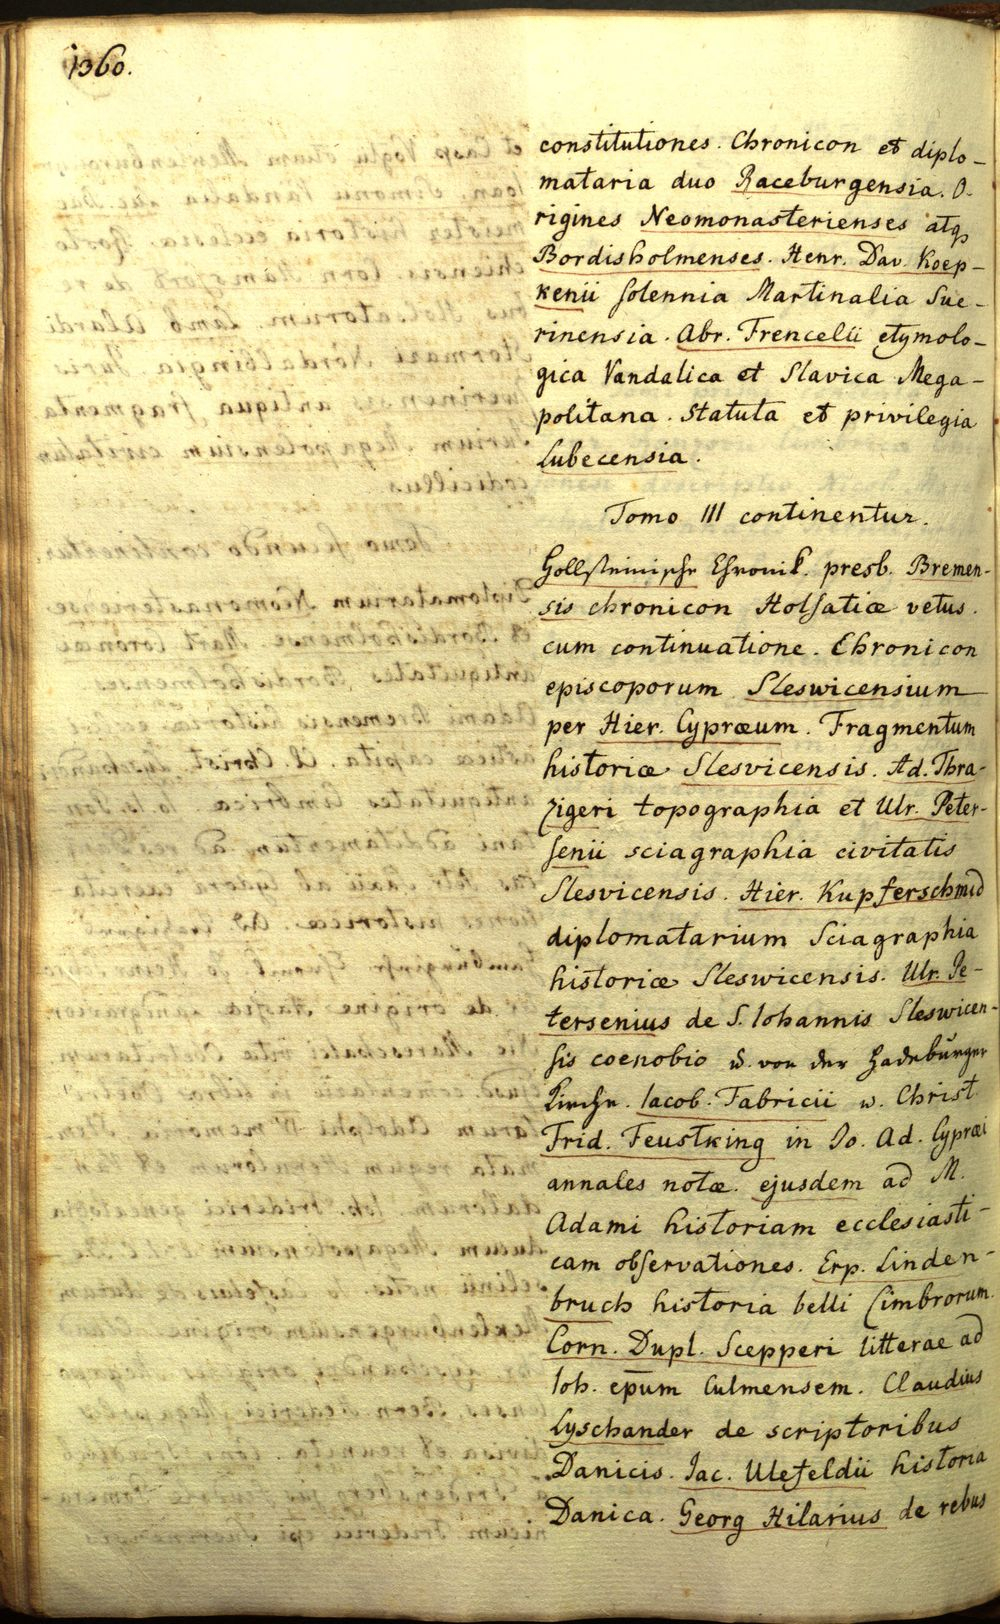 1360.
constitutiones. Chronicon et diplo-
mataria duo Raceburgensia. O-
rigines Neomonasterienses atq
Bordisholmenses. Henr. Dav. Koep-
kenii solennia Martinalia Sue-
rinensia. Abr. Frencelii etymolo-
gica Vandalica et Slavica Mega-
politana. Statuta et privilegia
Lubecensia.
Tomo III continentur.
Hollsteinische Chronik. presb. Bremen-
sis chronicon Holsatiæ vetus.
cum continuatione. Chronicon
episcoporum Sleswicensium
per Hier. Cypræum. Fragmentum
historiæ Slesvicensis. Ad. Thra-
zigeri topographia et Ulr. Peter-
senii sciagraphia civitatis
Slesvicensis. Hier. Kupferschmid
diplomatarium Sciagraphia
historiæ Sleswicensis. Ulr. Pe-
tersenius de S. Iohannis Sleswicen-
sis coenobio u. von der Hadebürger
Kirche. Iacob. Fabricii u. Christ.
Frid. Feustking in Jo. Ad. Cypræi
annales notæ. ejusdem ad M.
Adami historiam ecclesiasti-
cam observationes. Erp. Linden-
bruch historia belli Cimbrorum.
Corn. Dupl. Scepperi litterae ad
Ioh. epum Culmensem. Claudius
Lyschander de scriptoribus
Danicis. Iac. Ulefeldii historia
Danica. Georg Hilarius de rebus